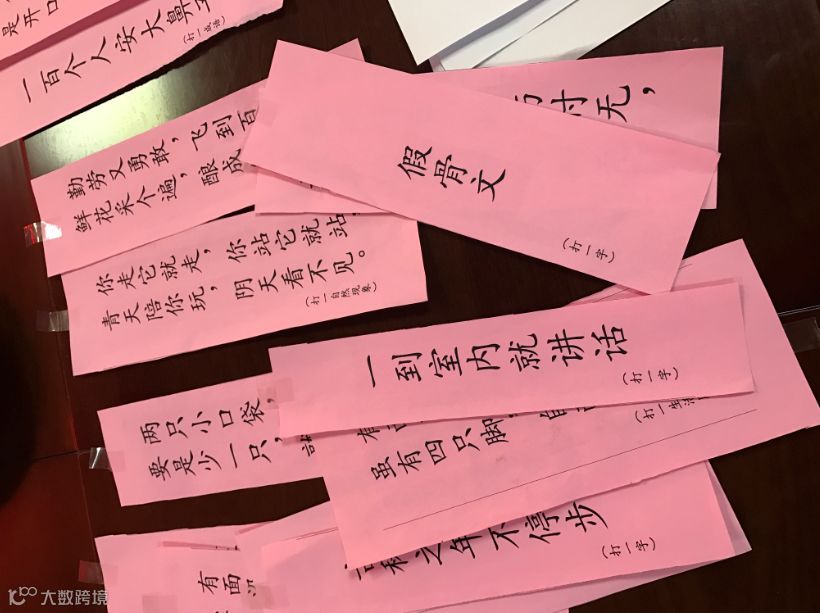 是开口
一百个人安大鼻
(打一成语)
勤劳又勇敢，飞到百
鲜花采个遍，酿成
你走它就走，你站它就站，
青天陪你玩，阴天看不见。
(打一自然现象)
时无，
假骨文
(打一字)
一到室内就讲话
(打一字)
两只小口袋，
要是少一只，
虽有四只脚，自
(打一生活
之年不停步
(打一字)
有面
大数跨境